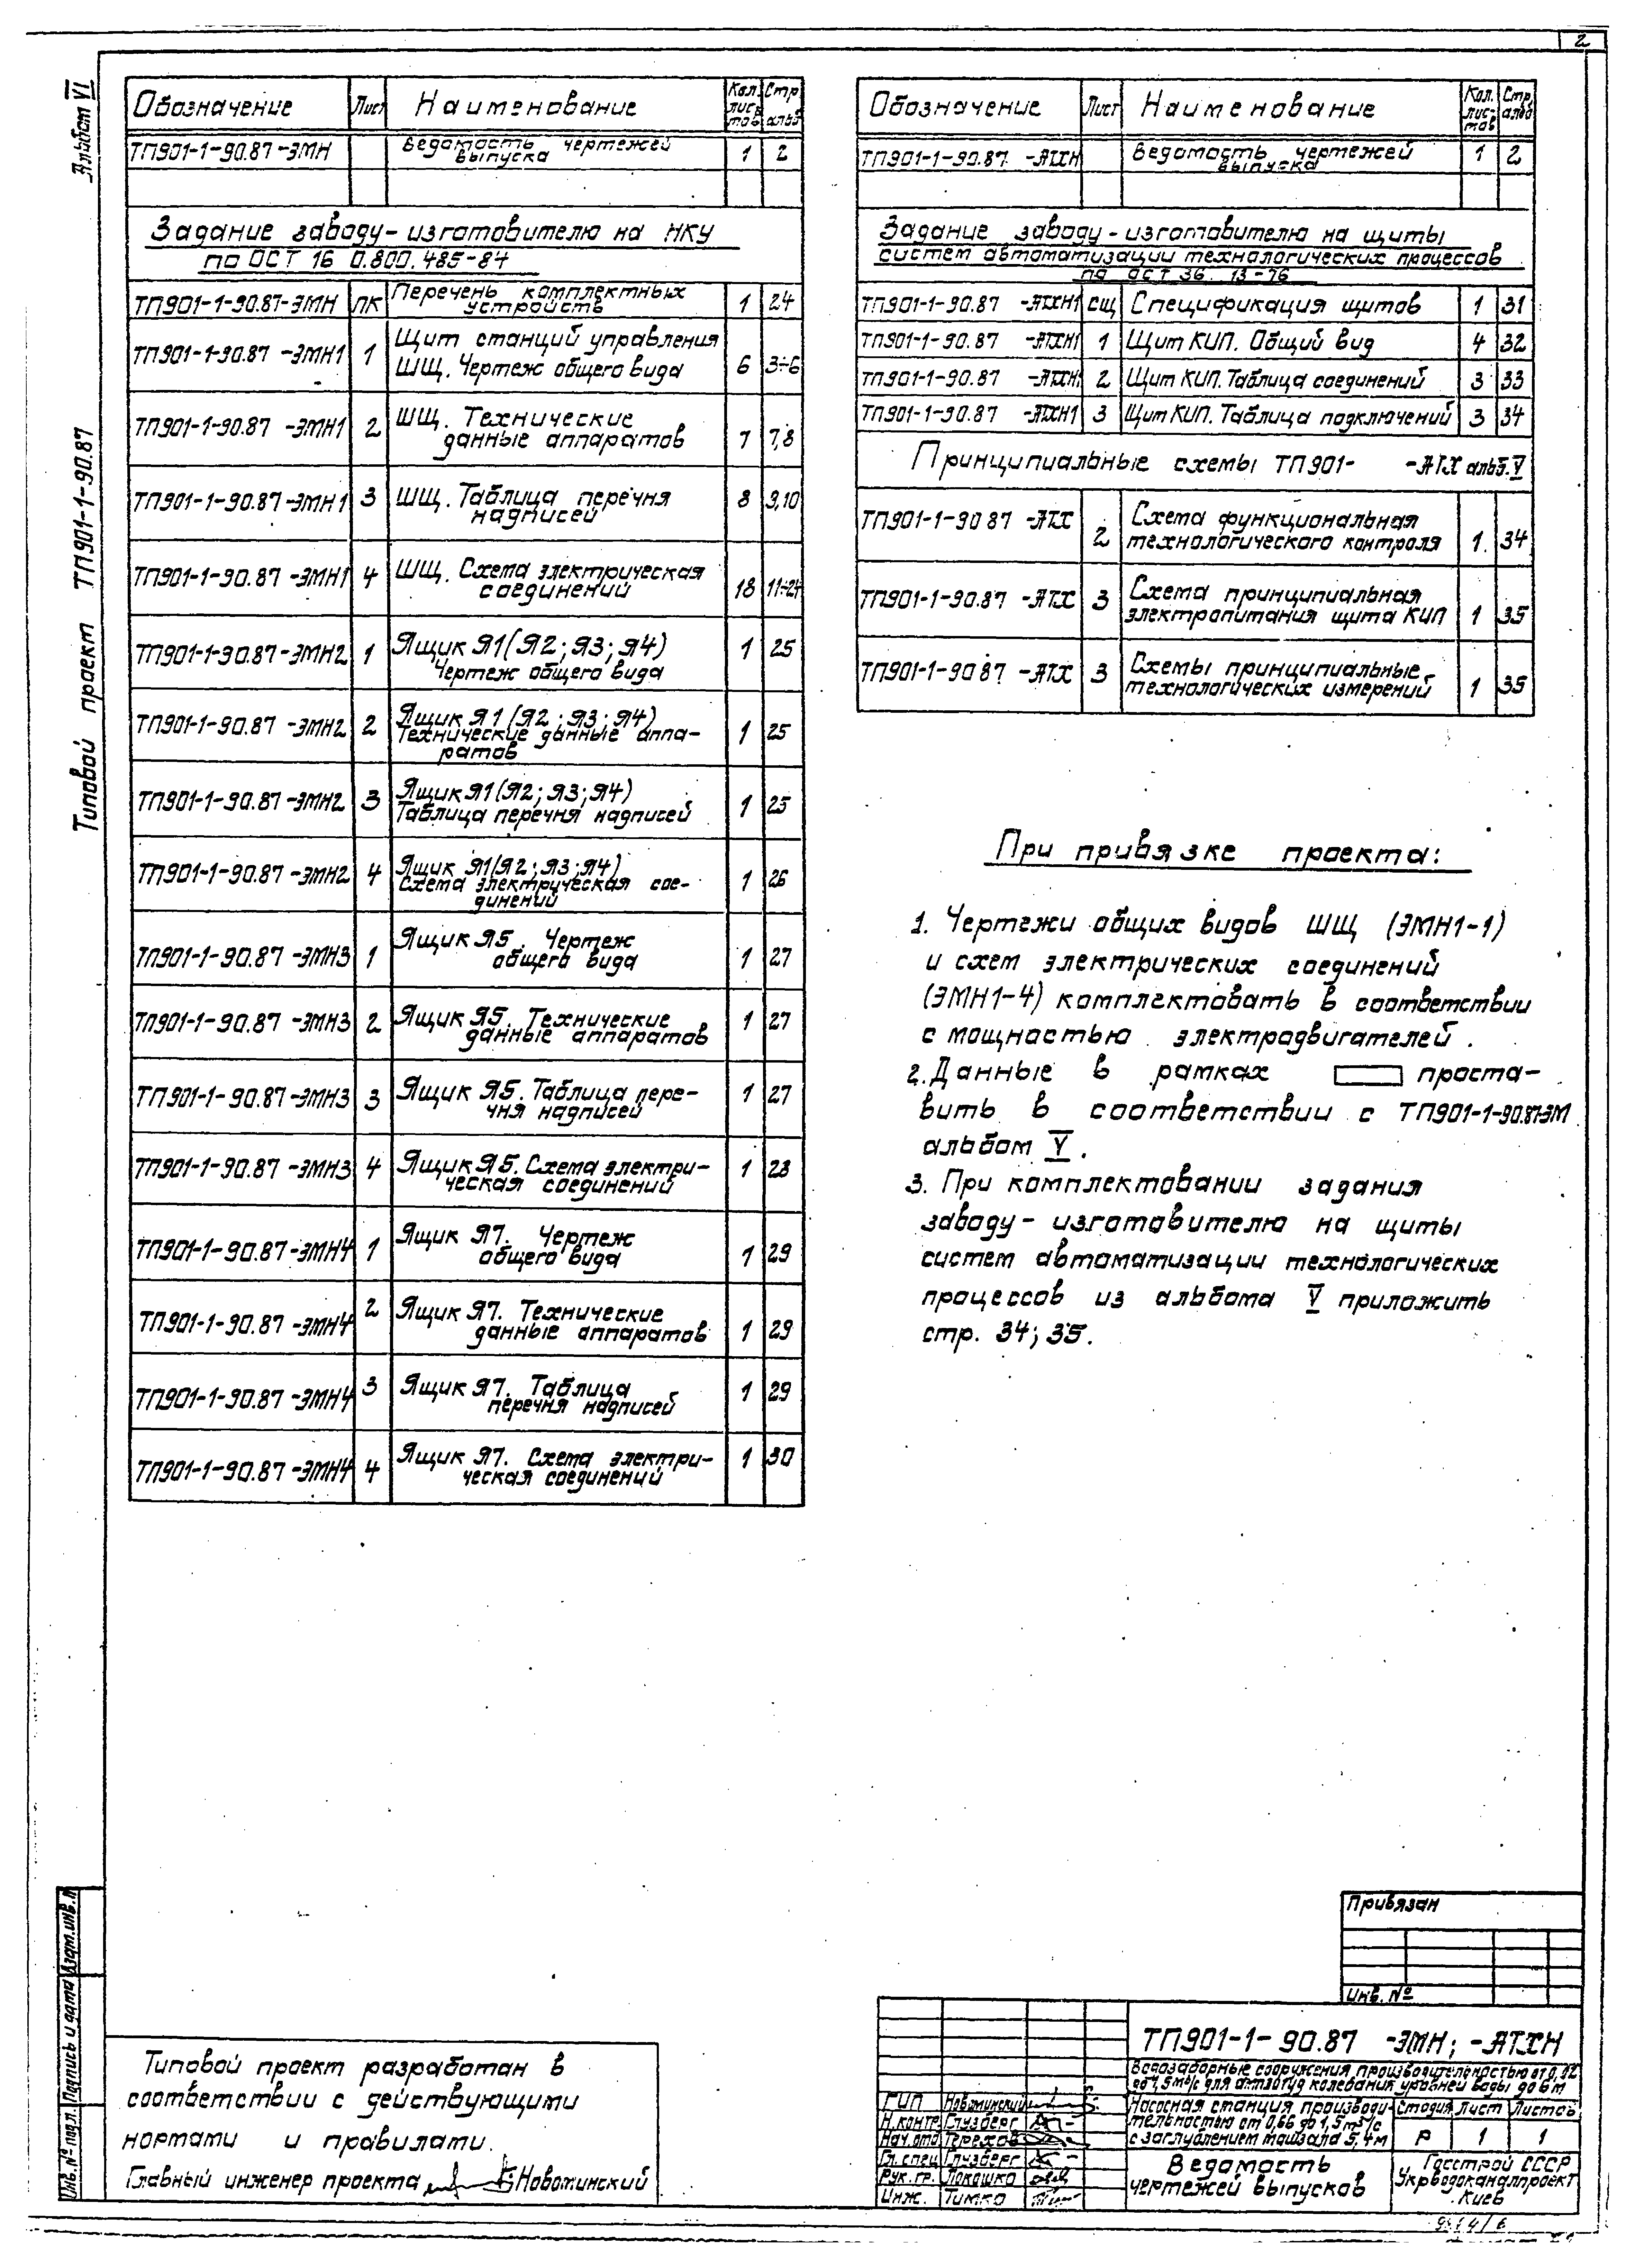 2
Альбом VI
Типовой проект ТП901-1-90.87
Обозначение Лист Наименование Кол. листов Стр. альб.
ТП901-1-90.87-ЭМН Ведомость чертежей выпуска 1 2
Задание заводу-изготовителю на НКУ
по ОСТ 16 0.800.485-84
ТП901-1-90.87-ЭМН ПК Перечень комплектных устройств 1 24
ТП901-1-90.87-ЭМН1 1 Щит станций управления ШЩ. Чертеж общего вида 6 3÷6
ТП901-1-90.87-ЭМН1 2 ШЩ. Технические данные аппаратов 7 7,8
ТП901-1-90.87-ЭМН1 3 ШЩ. Таблица перечня надписей 8 9,10
ТП901-1-90.87-ЭМН1 4 ШЩ. Схема электрическая соединений 18 11÷24
ТП901-1-90.87-ЭМН2 1 Ящик Я1(Я2; Я3; Я4) Чертеж общего вида 1 25
ТП901-1-90.87-ЭМН2 2 Ящик Я1(Я2; Я3; Я4) Технические данные аппа-ратов 1 25
ТП901-1-90.87-ЭМН2 3 Ящик Я1(Я2; Я3; Я4) Таблица перечня надписей 1 25
ТП901-1-90.87-ЭМН2 4 Ящик Я1(Я2; Я3; Я4) Схема электрическая сое-динений 1 26
ТП901-1-90.87-ЭМН3 1 Ящик Я5. Чертеж общего вида 1 27
ТП901-1-90.87-ЭМН3 2 Ящик Я5. Технические данные аппаратов 1 27
ТП901-1-90.87-ЭМН3 3 Ящик Я5. Таблица пере-чня надписей 1 27
ТП901-1-90.87-ЭМН3 4 Ящик Я5. Схема электри-ческая соединений 1 28
ТП901-1-90.87-ЭМН4 1 Ящик Я7. Чертеж общего вида 1 29
ТП901-1-90.87-ЭМН4 2 Ящик Я7. Технические данные аппаратов 1 29
ТП901-1-90.87-ЭМН4 3 Ящик Я7. Таблица перечня надписей 1 29
ТП901-1-90.87-ЭМН4 4 Ящик Я7. Схема электри-ческая соединений 1 30
Обозначение Лист Наименование Кол. лис-тов Стр. альб
ТП901-1-90.87 -АТХН Ведомость чертежей выпуска 1 2
Задание заводу-изготовителю на щиты
систем автоматизации технологических процессов
по ОСТ 36. 13-76
ТП901-1-90.87 -АТХН1 СЩ Спецификация щитов 1 31
ТП901-1-90.87 -АТХН1 1 Щит КИП. Общий вид 4 32
ТП901-1-90.87 -АТХН1 2 Щит КИП. Таблица соединений 3 33
ТП901-1-90.87 -АТХН1 3 Щит КИП. Таблица подключений 3 34
Принципиальные схемы ТП901- -АТХ альб. V
ТП901-1-90 87 -АТХ 2 Схема функциональная технологического контроля 1. 34
ТП901-1-90.87 -АТХ 3 Схема принципиальная электропитания щита КИП 1 35
ТП901-1-90 87 -АТХ 3 Схемы принципиальные технологических измерений 1 35
При привязке проекта:
1. Чертежи общих видов ШЩ (ЭМН1-1)
и схем электрических соединений
(ЭМН1-4) комплектовать в соответствии
с мощностью электродвигателей.
2. Данные в рамках проста-
вить в соответствии с ТП901-1-90.87-ЭМ
альбом V.
3. При комплектовании задания
заводу-изготовителю на щиты
систем автоматизации технологических
процессов из альбома V приложить
стр. 34; 35.
Привязан
Инв. №
ТП901-1-90.87 -ЭМН; -АТХН
Водозаборные сооружения производительностью от 0,02
до 1,5 м³/с для амплитуд колебания уровней воды до 6 м
Насосная станция производи-
тельностью от 0,66 до 1,5 м³/с
с заглублением машзала 5,4 м
Стадия Лист Листов
Р 1 1
Ведомость
чертежей выпусков
Госстрой СССР
Укрводоканалпроект
Киев
ГИП Новоминский
Н.контр. Глузберг
Нач.отд Терехов
Гл. спец Глузберг
Рук. гр. Локошко
Инж. Тимко
Типовой проект разработан в
соответствии с действующими
нормами и правилами.
Главный инженер проекта Новоминский
Инв. № подл. Подпись и дата Взам. инв. №